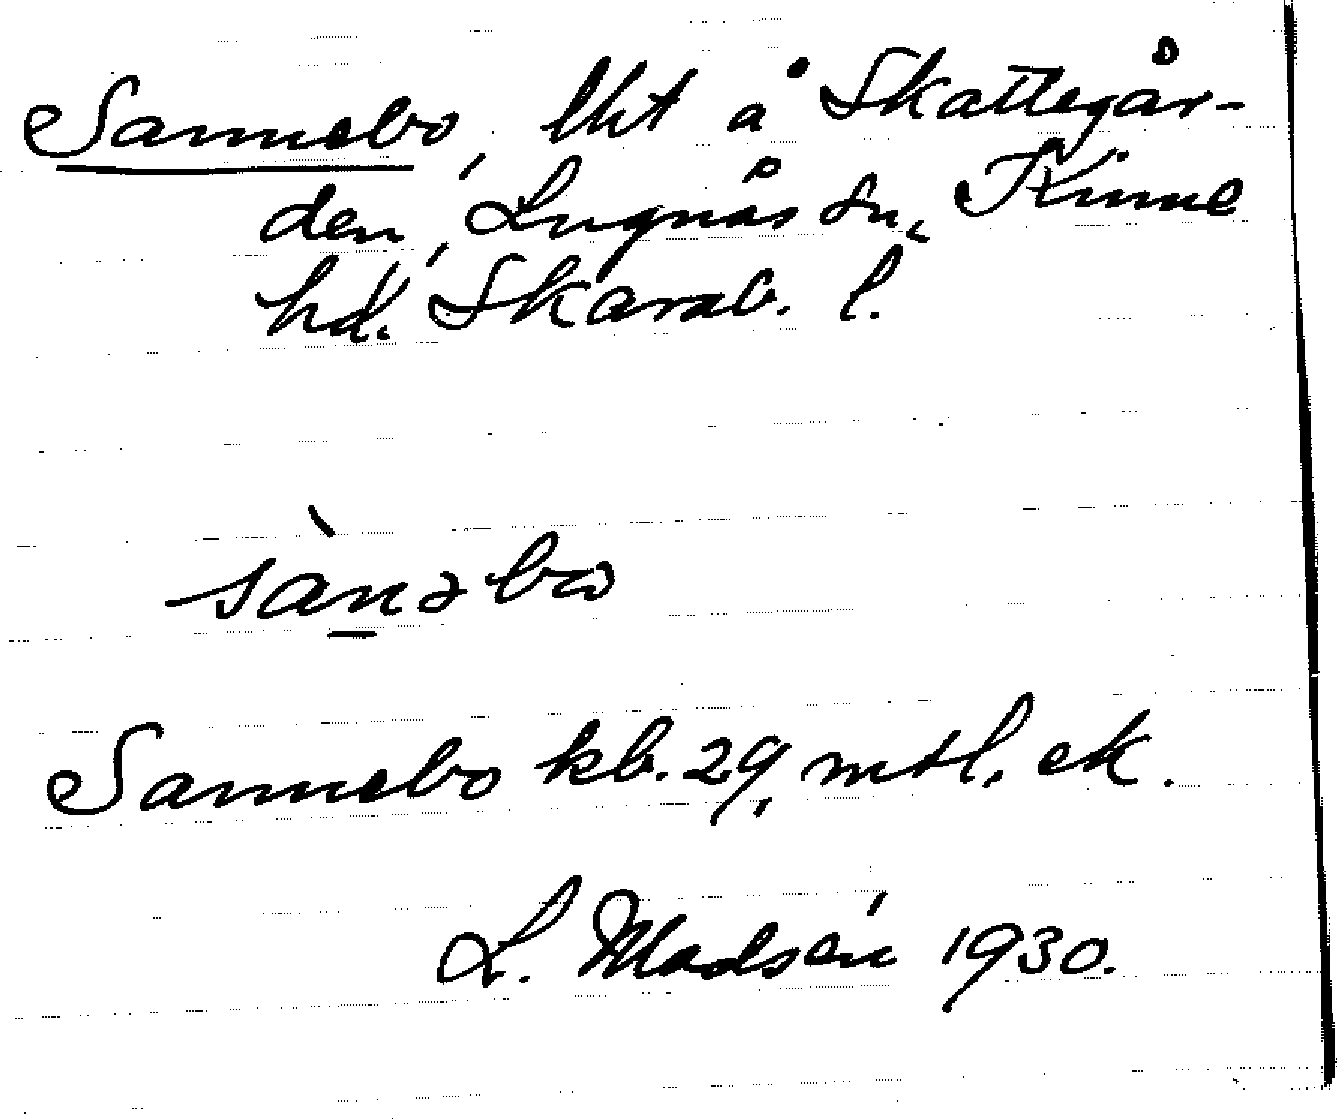 Sannebo, lht å Skattegår-
den, Lugnås sn, Kinne
hd. Skarab. l.
sànəbω
Sannebo kb. 29, mtl. ek.
L. Modsén 1930.